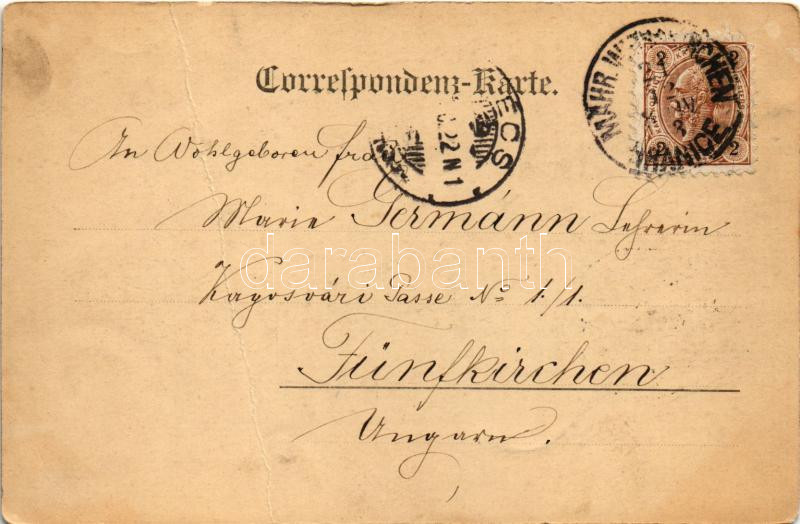 Correspondenz-Karte.
MÄHR. WEISSKIRCHEN
HRANICE
2 2
2 2
PÉCS
22 N 1
An Wohlgeboren frau
Marie Germánn Lehrerin
darabanth
Kaposvári Gasse No 1./1.
Fünfkirchen
Ungarn.